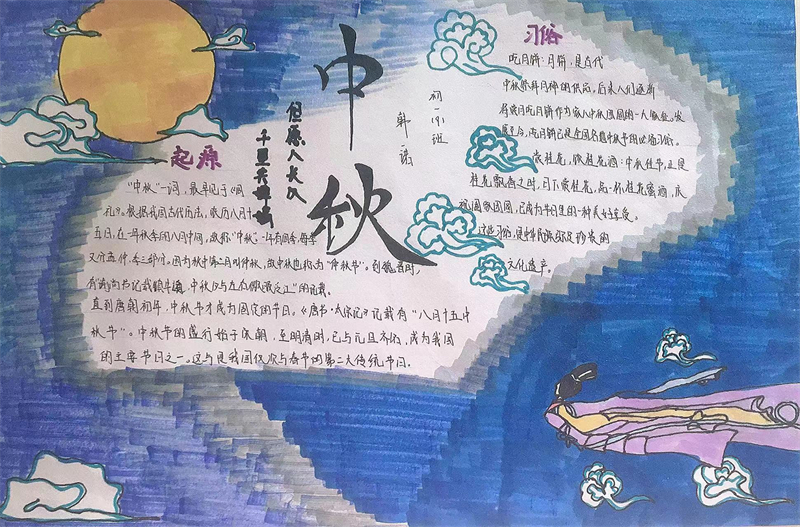 中秋
但愿人长久
千里共婵娟
起源
“中秋”一词，最早见于《周
礼》。根据我国古代历法，农历八月十
五日，在一年秋季的八月中旬，故称“中秋”。一年有四季，每季
又分孟、仲、季三部分。因为秋中第二月叫仲秋，故中秋也称为“仲秋节”。到魏晋时，
有“谕尚书镇牛渚，中秋夕与左右微服泛江”的记载。
直到唐朝初年，中秋节才成为固定的节日。《唐书·太宗记》记载有“八月十五中
秋节”。中秋节的盛行始于宋朝，至明清时，已与元旦齐名，成为我国
的主要节日之一。这也是我国仅次与春节的第二大传统节日。
初一（9）班
韩
习俗
吃月饼：月饼，是古代
中秋祭拜月神的供品，后来人们逐渐
将赏月吃月饼作为家人中秋团圆的一大象征。发
展至今，吃月饼已是全国各地中秋节的必备习俗。
赏桂花，饮桂花酒：中秋佳节，正是
桂花飘香之时，月下赏桂花，品一杯桂花蜜酒，庆
祝阖家团圆，已成为节日里的一种美好享受。
这些习俗，是中华民族弥足珍贵的
文化遗产。